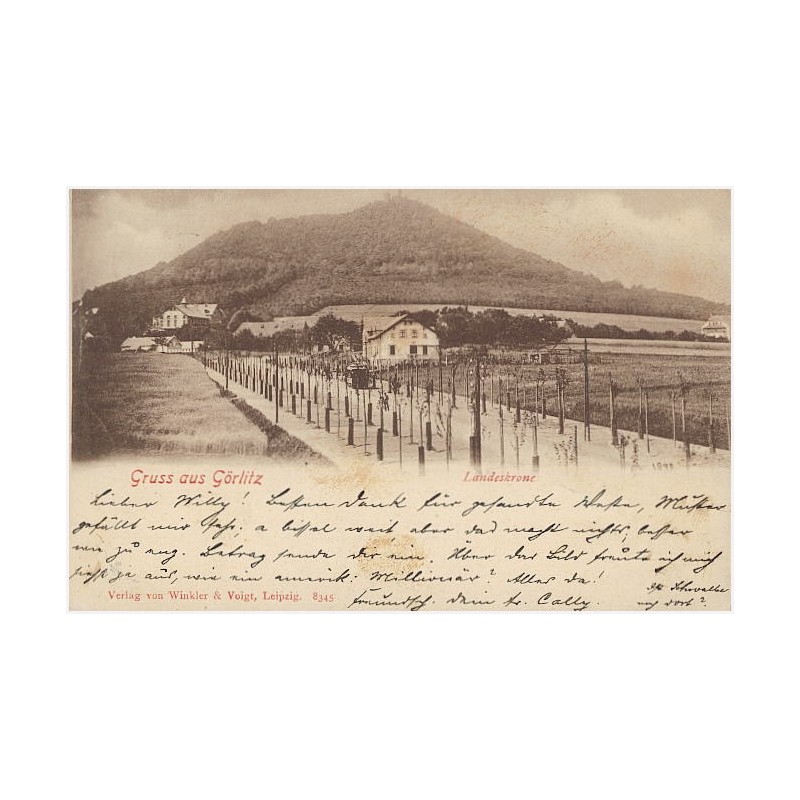 Gruss aus Görlitz
Landeskrone
Lieber Willy! Besten Dank für gesandte Weste, Muster
gefällt mir sehr, a bissel weit aber das macht nichts, besser
wie zu eng. Betrag sende dir ein. Über das Bild freute ich mich
siehst ja aus, wie ein amerik: Millionär? Alles da!
Verlag von Winkler & Voigt, Leipzig. 8345
freundsch. dein tr. Cally.
Schwalbe
noch dort?